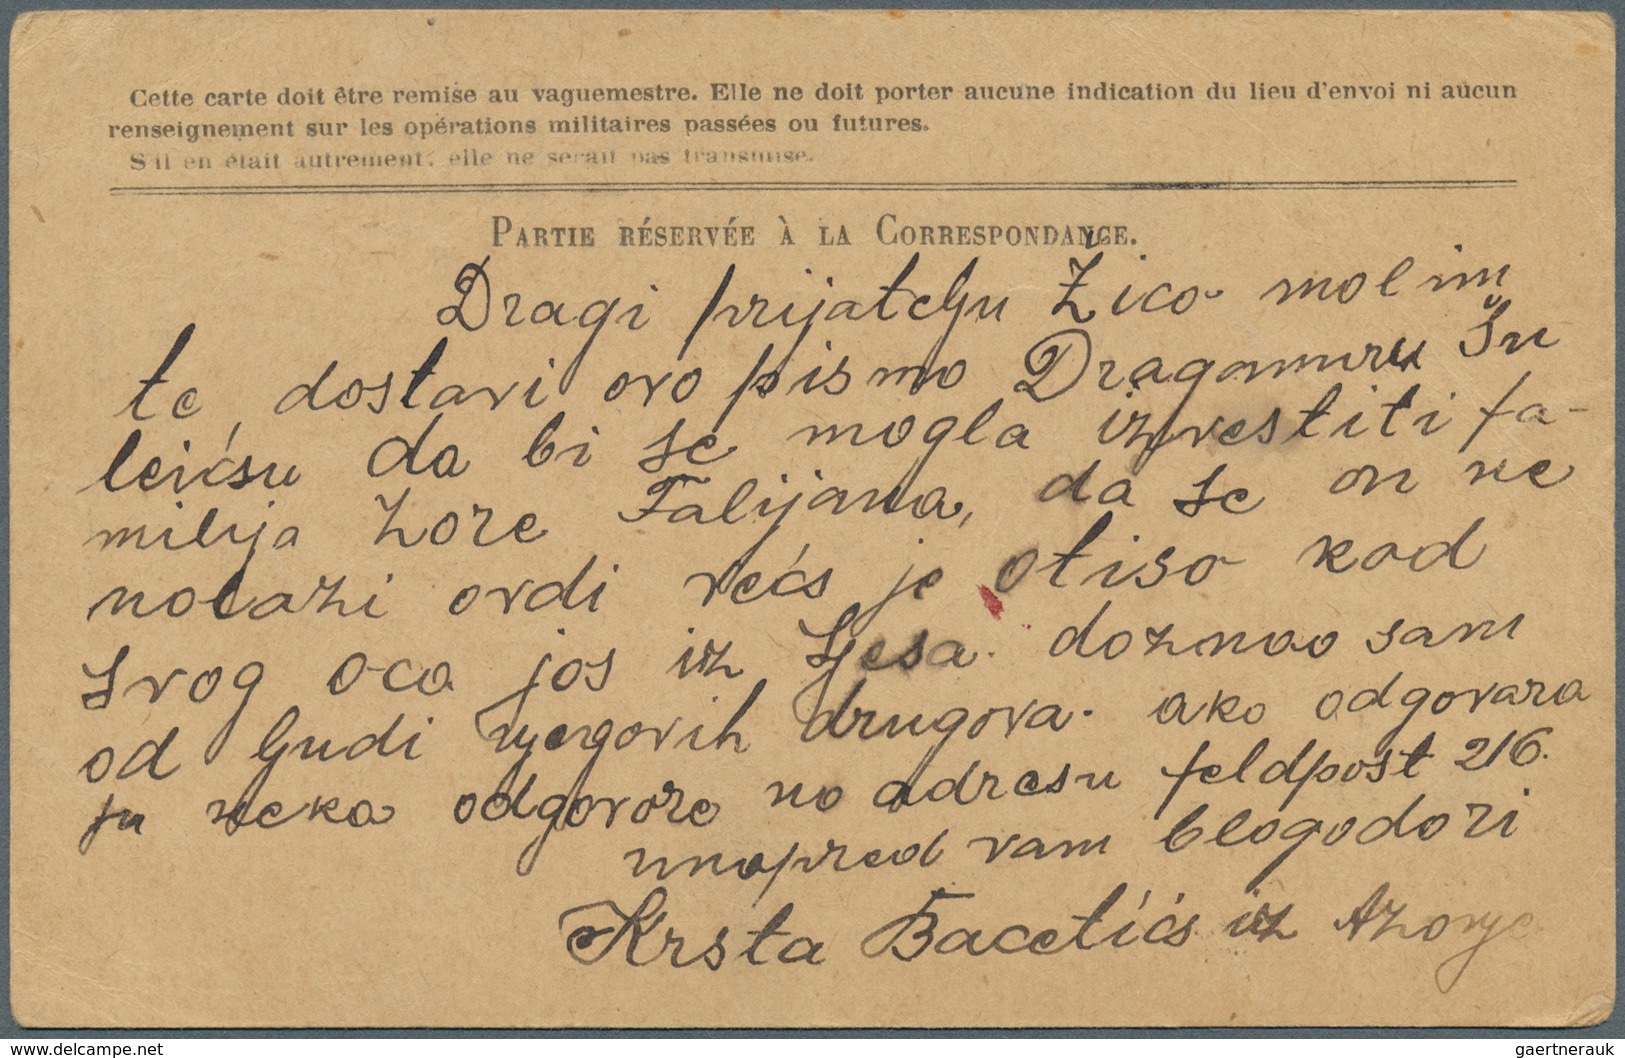 Cette carte doit être remise au vaguemestre. Elle ne doit porter aucune indication du lieu d'envoi ni aucun
renseignement sur les opérations militaires passées ou futures.
S'il en était autrement, elle ne serait pas transmise.
PARTIE RÉSERVÉE À LA CORRESPONDANCE.
Dragi prijatelju Žico molim
te dostavi ovo pismo Dragomiru Šu
leićsu da bi se mogla izvestiti fa-
milija Zore Falijana, da se on ne
nolazi ovdi većs je otiso kod
svog oca jos iz doznao sam
od ljudi njegovih drugova. ako odgovara
ju neka odgovore no adresu feldpost 216.
unapred vam blogodori
Krsta Bacetićs iz
delcampe.net
gaertnerauk